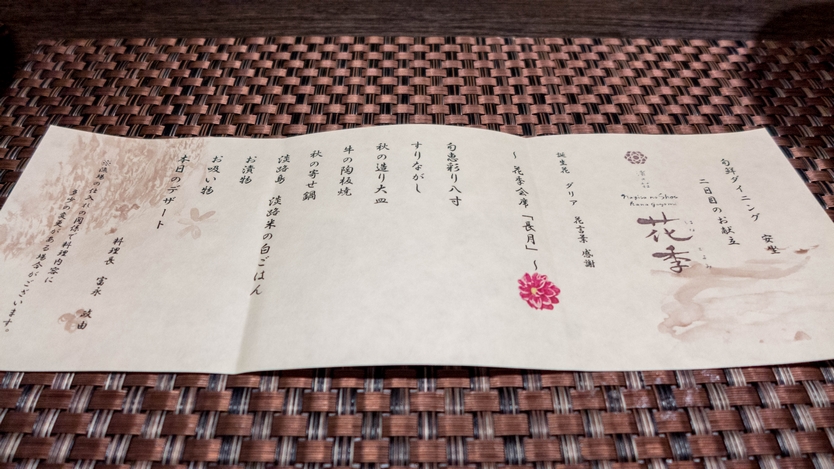 旬鮮ダイニング 安坐
二日目のお献立
Nagisa no Shou
Hana Goyomi
花季
はな ごよみ
誕生花 ダリア 花言葉 感謝
～ 花季会席「長月」～
旬恵彩り八寸
すりながし
秋の造り大皿
牛の陶板焼
秋の寄せ鍋
淡路島 淡路米の白ごはん
お漬物
お吸い物
本日のデザート
料理長 富永
の仕入れの関係で料理内容に
多少の変更がある場合がございます。